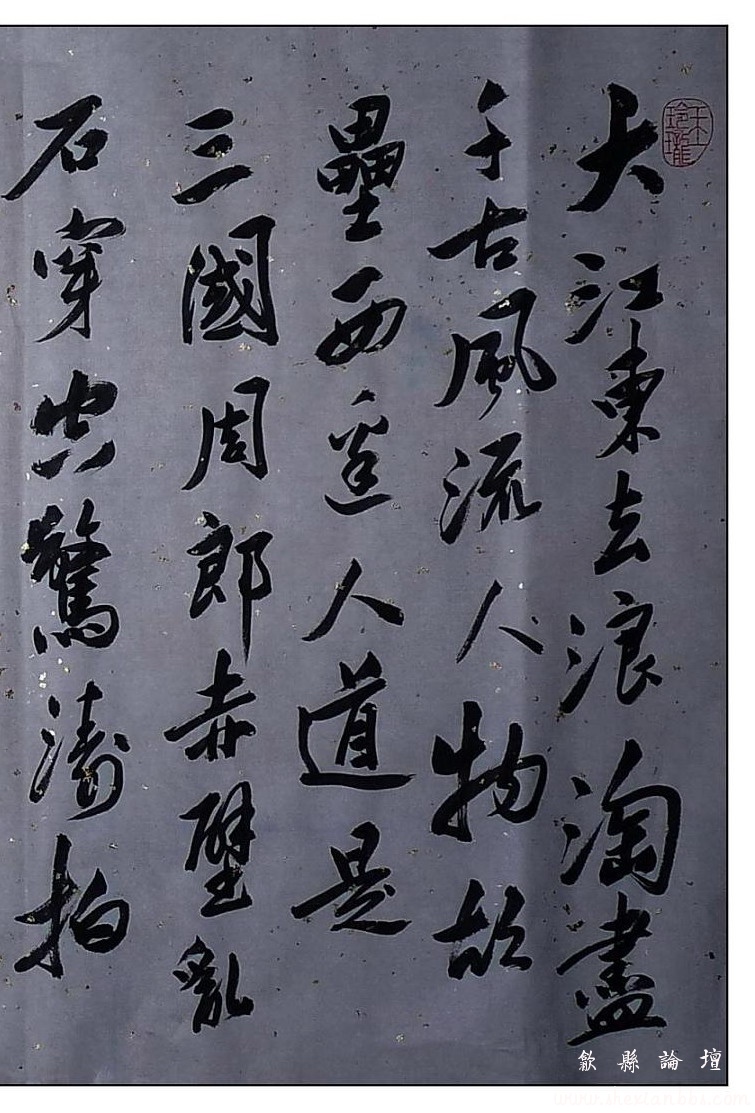 玲瓏
大江東去浪淘盡
千古風流人物故
壘西邊人道是
三國周郎赤壁亂
石穿空驚濤拍
歙縣論壇